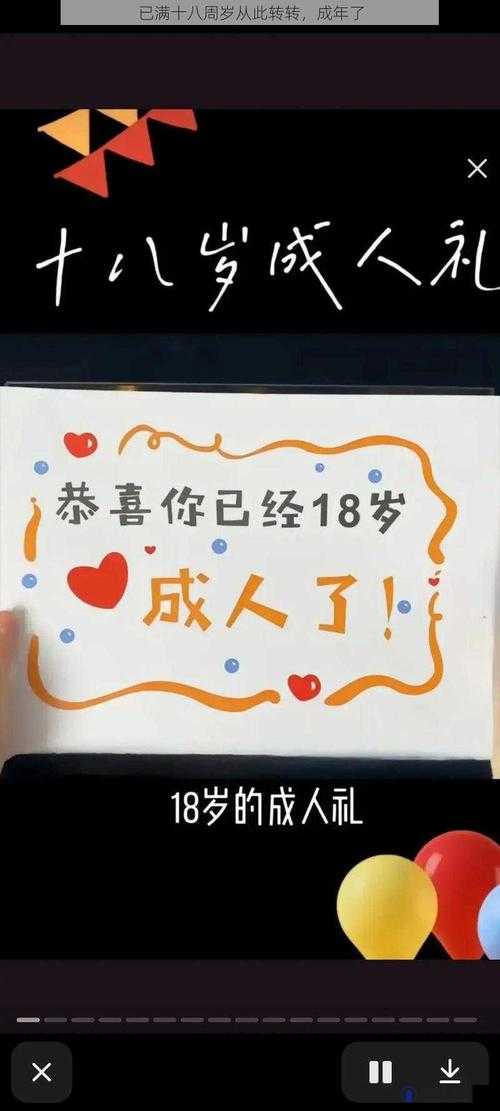 已满十八周岁从此转转，成年了
十八岁成人礼
恭喜你已经18岁
成人了！
18岁的成人礼